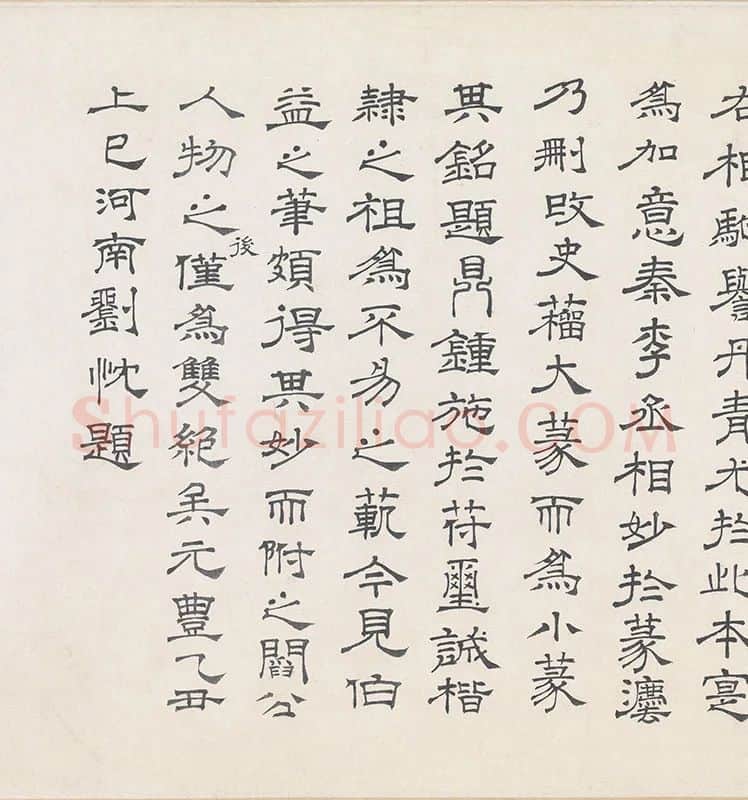 右相馳譽丹青尤於此本寔
為加意秦李丞相妙於篆瀍
乃刪改史籀大篆而為小篆
其銘題鼎鍾施於苻璽誠楷
隸之祖為不易之範今見伯
益之筆頗得其妙而附之閻公
人物之後僅為雙絕矣元豊乙丑
上巳河南劉忱題
Shufaziliao.COM